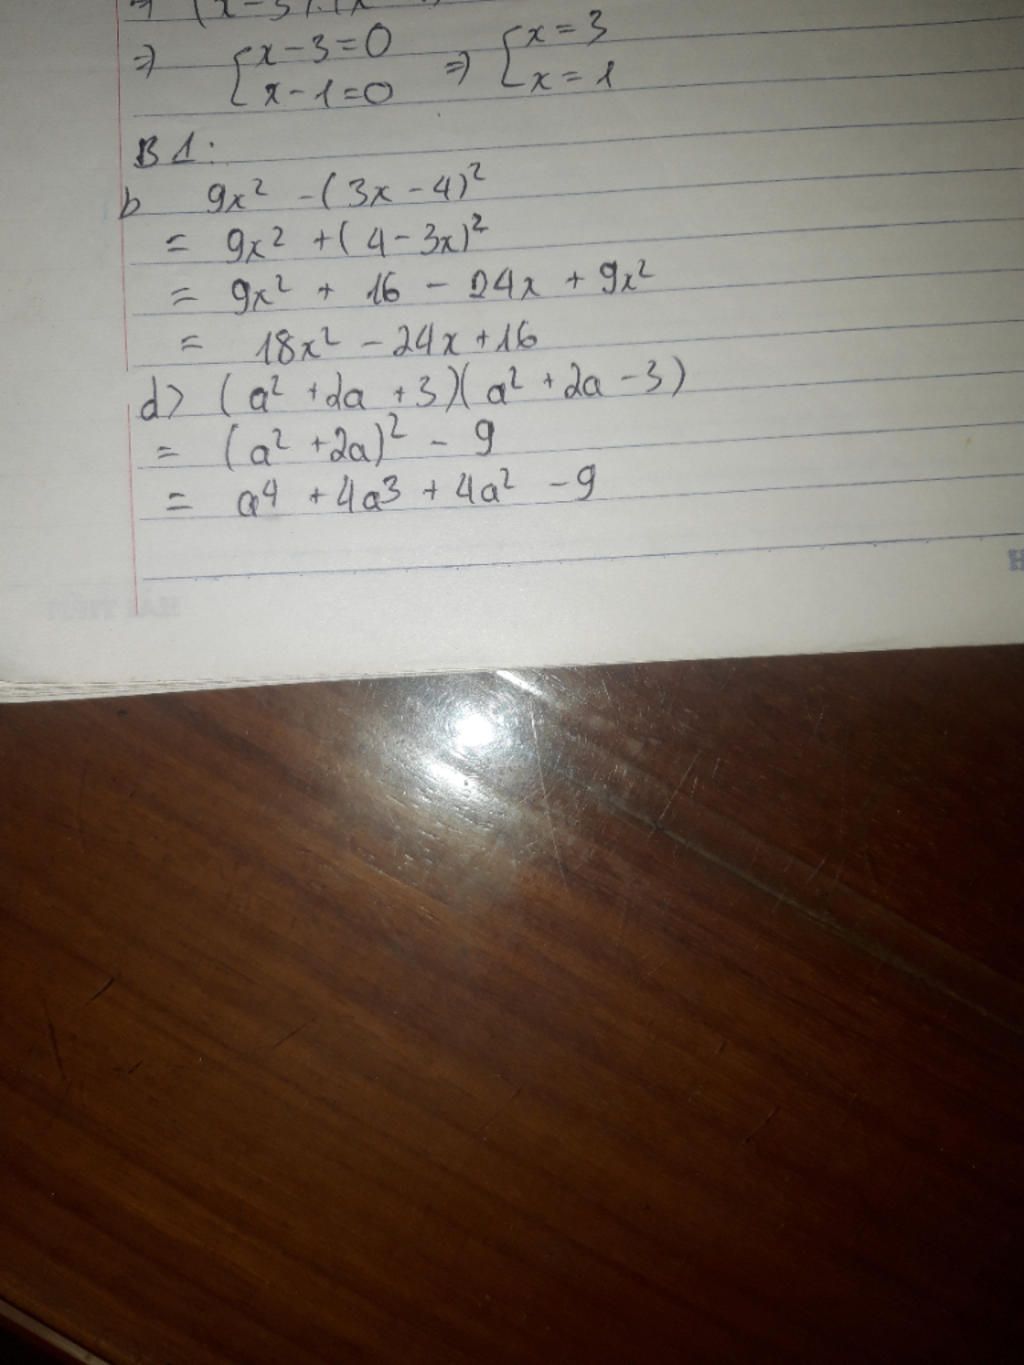 => (x-3).(x
=> { x-3=0 => { x=3
x-1=0 x=1
B1:
b 9x² -(3x-4)²
= 9x² +(4-3x)²
= 9x² + 16 - 24x + 9x²
= 18x² - 24x + 16
d> (a² +2a +3)(a² +2a -3)
= (a² +2a)² - 9
= a⁴ + 4a³ + 4a² - 9
H